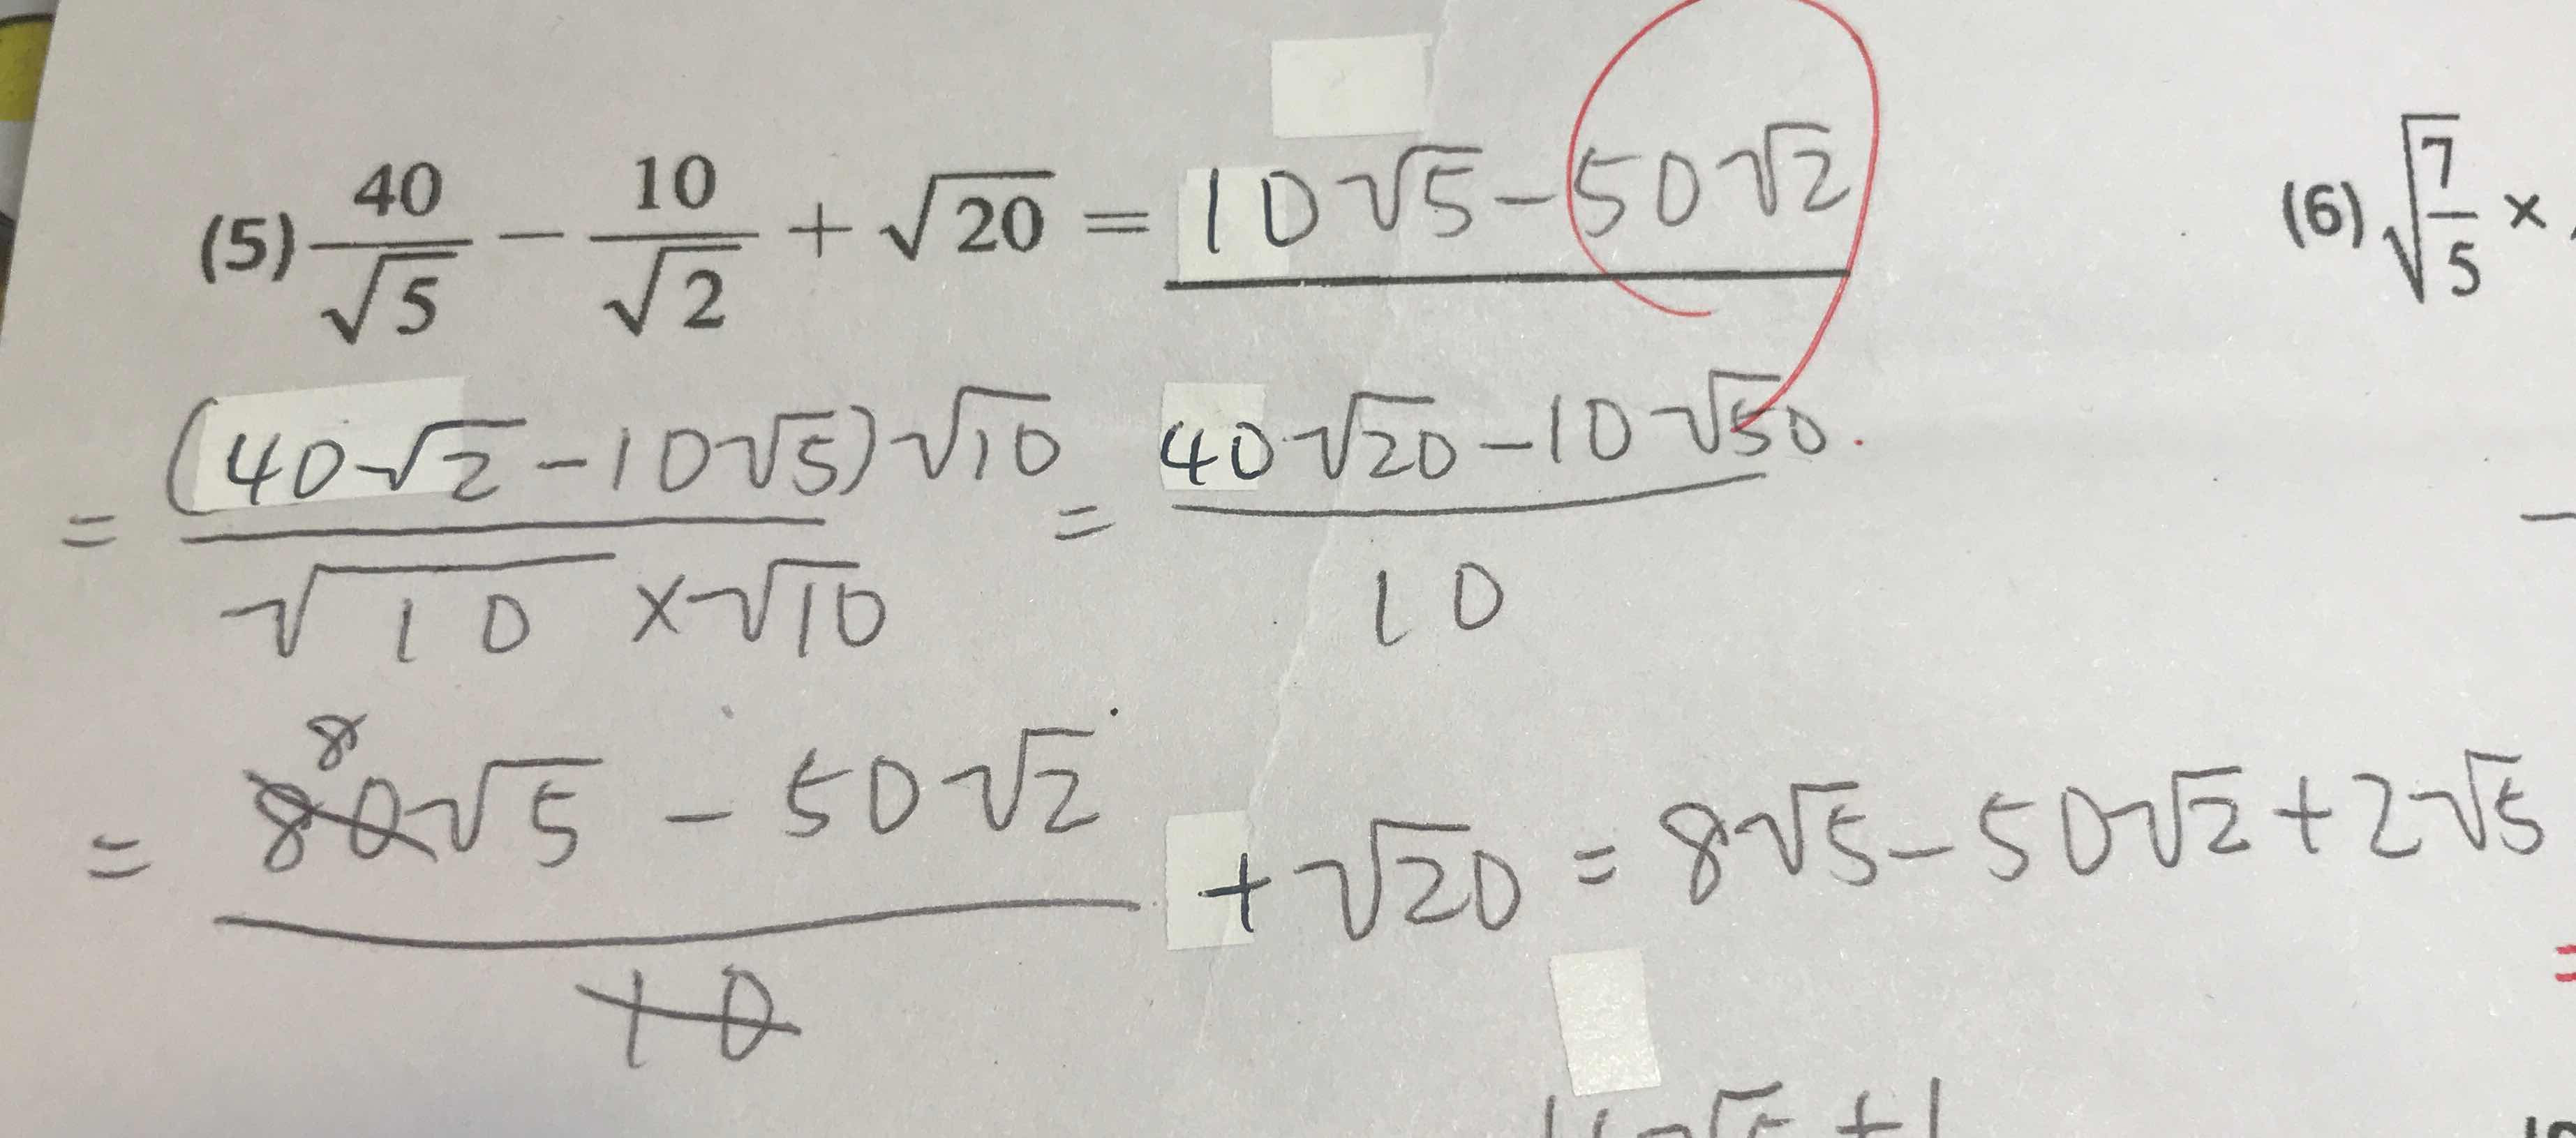 (5) 40/√5 − 10/√2 + √20 = 10√5 − 50√2
(6) √(7/5) ×
= (40√2 − 10√5)√10 / √10 × √10 = 40√20 − 10√50 / 10
= 8 80√5 − 50√2 / 10 + √20 = 8√5 − 50√2 + 2√5
=